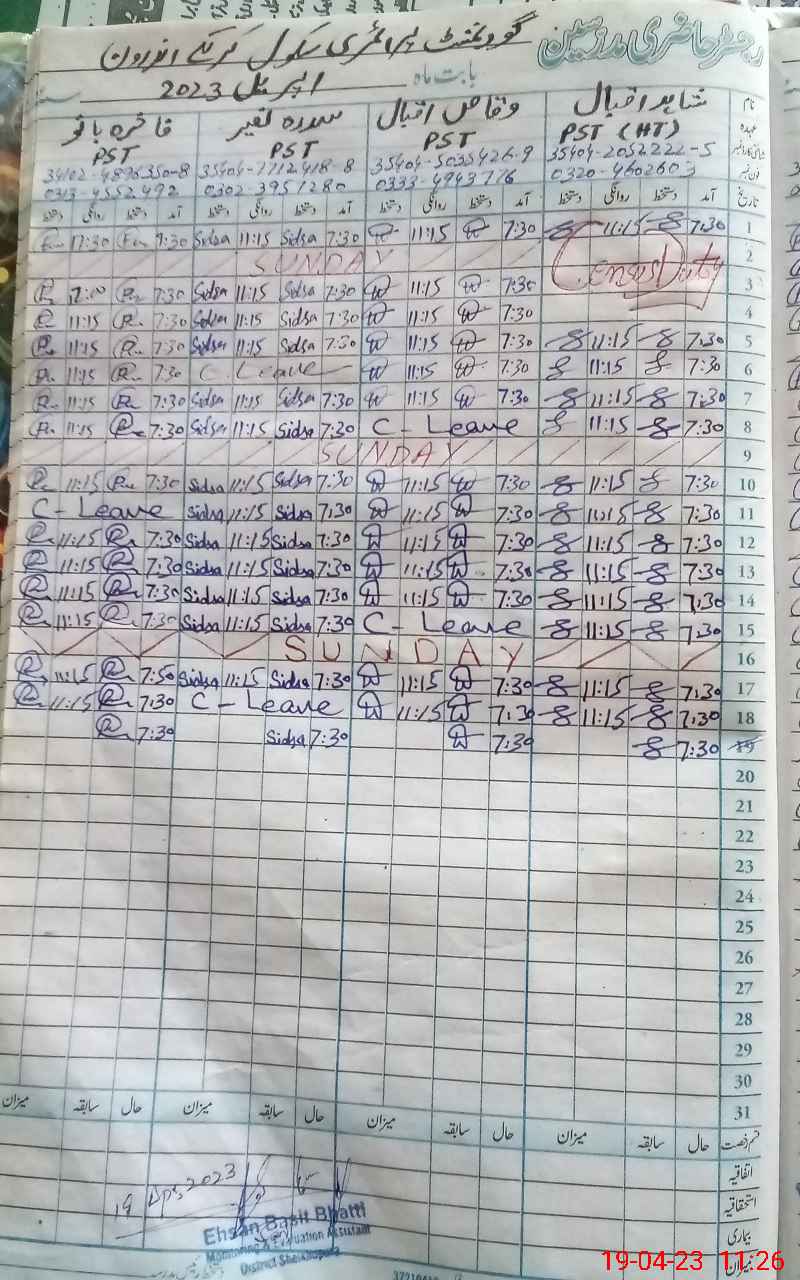 رجسٹر حاضری مدرسین گورنمنٹ پرائمری سکول کرتے اندرون
بابت ماہ اپریل 2023
نام شاہد اقبال وقاص اقبال سدرہ نصیر فاخرہ بانو
عہدہ PST (HT) PST PST PST
35404-2052222-5 35404-5035426-9 35404-7712418-8 34102-4896350-8
0320-4602603 0333-4943776 0302-3951280 0313-4552492
تاریخ آمد دستخط روانگی دستخط آمد دستخط روانگی دستخط آمد دستخط روانگی دستخط آمد دستخط روانگی دستخط
1 7:30 11:15 7:30 11:15 7:30 Sidsa 11:15 Sidsa 7:30 11:30
2 SUNDAY
Census Duty
3 7:30 11:15 7:30 Sidsa 11:15 Sidsa 7:30
4 7:30 11:15 7:30 Sidsa 11:15 Sidsa 7:30 11:15
5 7:30 11:15 7:30 11:15 7:30 Sidsa 11:15 Sidsa 7:30 11:15
6 7:30 11:15 7:30 11:15 C. Leave 7:30 11:15
7 7:30 11:15 7:30 11:15 7:30 Sidsa 11:15 Sidsa 7:30 11:15
8 7:30 11:15 C - Leave 7:30 Sidsa 11:15 Sidsa 7:30 11:15
9 SUNDAY
10 7:30 11:15 7:30 11:15 7:30 Sidsa 11:15 Sidsa 7:30 11:15
11 7:30 11:15 7:30 11:15 7:30 Sidsa 11:15 Sidsa C - Leave
12 7:30 11:15 7:30 11:15 7:30 Sidsa 11:15 Sidsa 7:30 11:15
13 7:30 11:15 7:30 11:15 7:30 Sidsa 11:15 Sidsa 7:30 11:15
14 7:30 11:15 7:30 11:15 7:30 Sidsa 11:15 Sidsa 7:30 11:15
15 7:30 11:15 C - Leave 7:30 Sidsa 11:15 Sidsa 7:30 11:15
16 SUNDAY
17 7:30 11:15 7:30 11:15 7:30 Sidsa 11:15 Sidsa 7:50 11:15
18 7:30 11:15 7:30 11:15 C - Leave 7:30 11:15
19 7:30 7:30 7:30 Sidsa 7:30
20
21
22
23
24
25
26
27
28
29
30
31
قسم رخصت حال سابقہ میزان حال سابقہ میزان حال سابقہ میزان حال سابقہ میزان
اتفاقیہ
استحقاقیہ
بیماری
میزان
19 Apr, 2023
Ehsan Basit Bhatti
Monitoring & Evaluation Assistant
District Sheikhupura
19-04-23 11:26